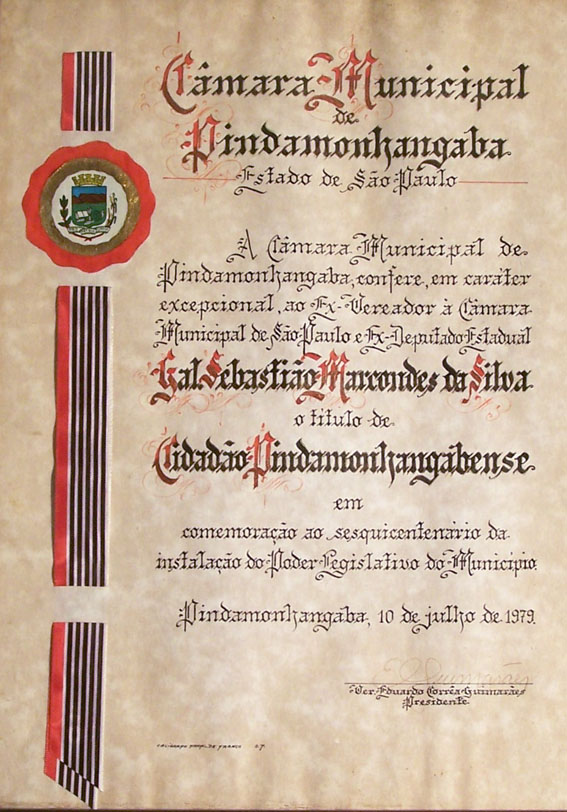 Câmara Municipal
de
Pindamonhangaba
Estado de São Paulo
A Câmara Municipal de
Pindamonhangaba, confere, em caráter
excepcional, ao Ex-Vereador à Câmara
Municipal de São Paulo e Ex-Deputado Estadual
Gal. Sebastião Marcondes da Silva
o título de
Cidadão Pindamonhangabense
em
comemoração ao sesquicentenário da
instalação do Poder Legislativo do Município.
Pindamonhangaba, 10 de julho de 1979.
Guimarães
Ver. Eduardo Corrêa Guimarães
Presidente